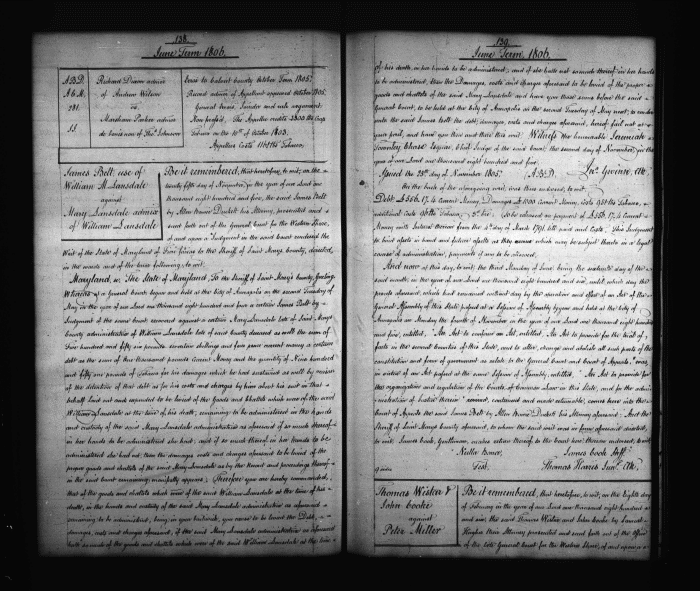 138.
June Term 1806.
A.B.D.
A.& H.
281.
SS.
Richard Dixon admr
of Andrew Wilson
vs.
Matthew Parker admr
de bonis non of Thos Johnson
October Term 1805.
Record admr of Appellant appeared October 1805.
General errors. Joinder and rule argument
Non prossed.
Tobacco on the 10th of October 1803.
Appellees Costs Tobacco.
James Belt, use of
William M Lansdale
against
Mary Lansdale admrx
of William Lansdale
Be it remembered, that heretofore, to wit, on the
twenty fifth day of November, in the year of our Lord one
thousand eight hundred and five, the said James Belt
by Allen Bowie Duckett his Attorney, presented and
sued forth out of the General Court for the Western Shore,
and upon a Judgment in the said Court rendered the
Writ of the State of Maryland of to the Sheriff of Saint Mary's County, directed,
in the words and of the tenor following, to wit:
Maryland, ss. The State of Maryland, To the Sheriff of Saint Mary's County, Greeting.
Whereas at a General Court begun and held at the City of Annapolis on the second Tuesday of
May in the year of our Lord one thousand eight hundred and five a certain James Belt by
Judgment of the same Court recovered against a certain Mary Lansdale late of Saint Mary's
County administratrix of William Lansdale late of said County deceased as well the sum of
Five hundred and fifty six pounds seventeen shillings and four pence current money a certain
debt as the sum of one thousand pounds Current Money and the quantity of Nine hundred
and fifty one pounds of Tobacco for his damages which he had sustained as well by reason
of the detention of that debt as for his costs and charges by him about his suit in that
behalf laid out and expended to be levied of the goods and chattels which were of the said
William Lansdale at the time of his death, remaining to be administered in the hands
and custody of the said Mary Lansdale administratrix as aforesaid if so much thereof
in her hands to be administered she had; and if so much thereof in her hands to be
administered she had not then the damages costs and charges aforesaid to be levied of the
proper goods and chattels of the said Mary Lansdale as by the Record and proceedings thereof
in the said Court remaining manifestly appears; Therefore you are hereby commanded,
that of the goods and chattels which were of the said William Lansdale at the time of his
death, in the hands and custody of the said Mary Lansdale administratrix as aforesaid
remaining to be administered, being in your bailiwick, you cause to be levied the Debt,
damages, costs and charges aforesaid, if the said Mary Lansdale administratrix as aforesaid
hath so much of the goods and chattels which were of the said William Lansdale at the time
139.
June Term 1806.
of his death, in her hands to be administered; and if she hath not so much thereof in her hands
to be administered, then the Damages, costs and charges aforesaid to be levied of the proper
goods and chattels of the said Mary Lansdale and have you those sums before the said
General Court, to be held at the City of Annapolis on the second Tuesday of May next, to render
unto the said James Belt the debt, damages, costs and charges aforesaid, hereof fail not at
your peril, and have you then and there this writ. Witness the honourable Jeremiah
Townley Chase Esquire, Chief Judge of the said Court, the second day of November, in the
year of our Lord one thousand eight hundred and five.
Issued the 25th day of November 1805. (A.B.D) Jno. Gwinn, Clk.
On the back of the aforegoing writ, was thus endorsed, to wit.
Debt £556..17..4 Current Money, Damages £1000 Current Money, Costs 951 lbs Tobacco,
additional Costs lbs Tobacco, To be released on payment of £556..17..4 Current
Money with Interest thereon from the 4th day of March 1791 till paid and Costs. This Judgment
to bind assets in hand and future assets as they accrue which may be subject thereto in a legal
course of administration, payments if any to be allowed.
And now at this day, to wit, the third Monday of June being the sixteenth day of the
said month, in the year of our Lord one thousand eight hundred and six, until which day the
process aforesaid, which last remained without day by the number and effect of an Act of the
General Assembly of this State passed at a Session of Assembly begun and held at the City of
Annapolis on Monday the fourth of November in the year of our Lord one thousand eight hundred
and five, entitled, "An Act to confirm an Act, entitled, An Act to provide for the trial of
facts in the several Counties of this State, and to alter, change and abolish all such parts of the
constitution and form of government as relate to the General Court and Court of Appeals," was,
in virtue of an Act passed at the same Session of Assembly, entitled, "An Act to provide for
the organization and regulation of the Courts of Common Law in this State, and for the admin-
istration of Justice therein" revived, continued and made returnable, comes here into the
Court of Appeals the said James Belt by Allen Bowie Duckett his Attorney aforesaid. And the
Sheriff of Saint Mary's County aforesaid, to whom the said writ was in form aforesaid directed,
to wit, James Cook, Gentleman, makes return thereof to the Court here, thereon endorsed, to wit,
Nulla Bona, James Cook Shff."
Test. Thomas Harris Junr. Clk.
Thomas Wister &
John Cooke
against
Peter Miller
Be it remembered, that heretofore, to wit, on the Eighth day
of February in the year of our Lord one thousand eight hundred
and six, the said Thomas Wister and John Cooke by
their Attorney presented and sued forth out of the Office
of the late General Court for the Western Shore, of and upon a